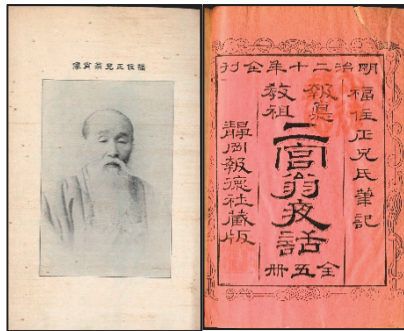 福住正兄翁肖像
明治二十年全刊
福住正兄氏筆記
報悳
教祖
二宮翁夜話
全五冊
靜岡報德社藏版